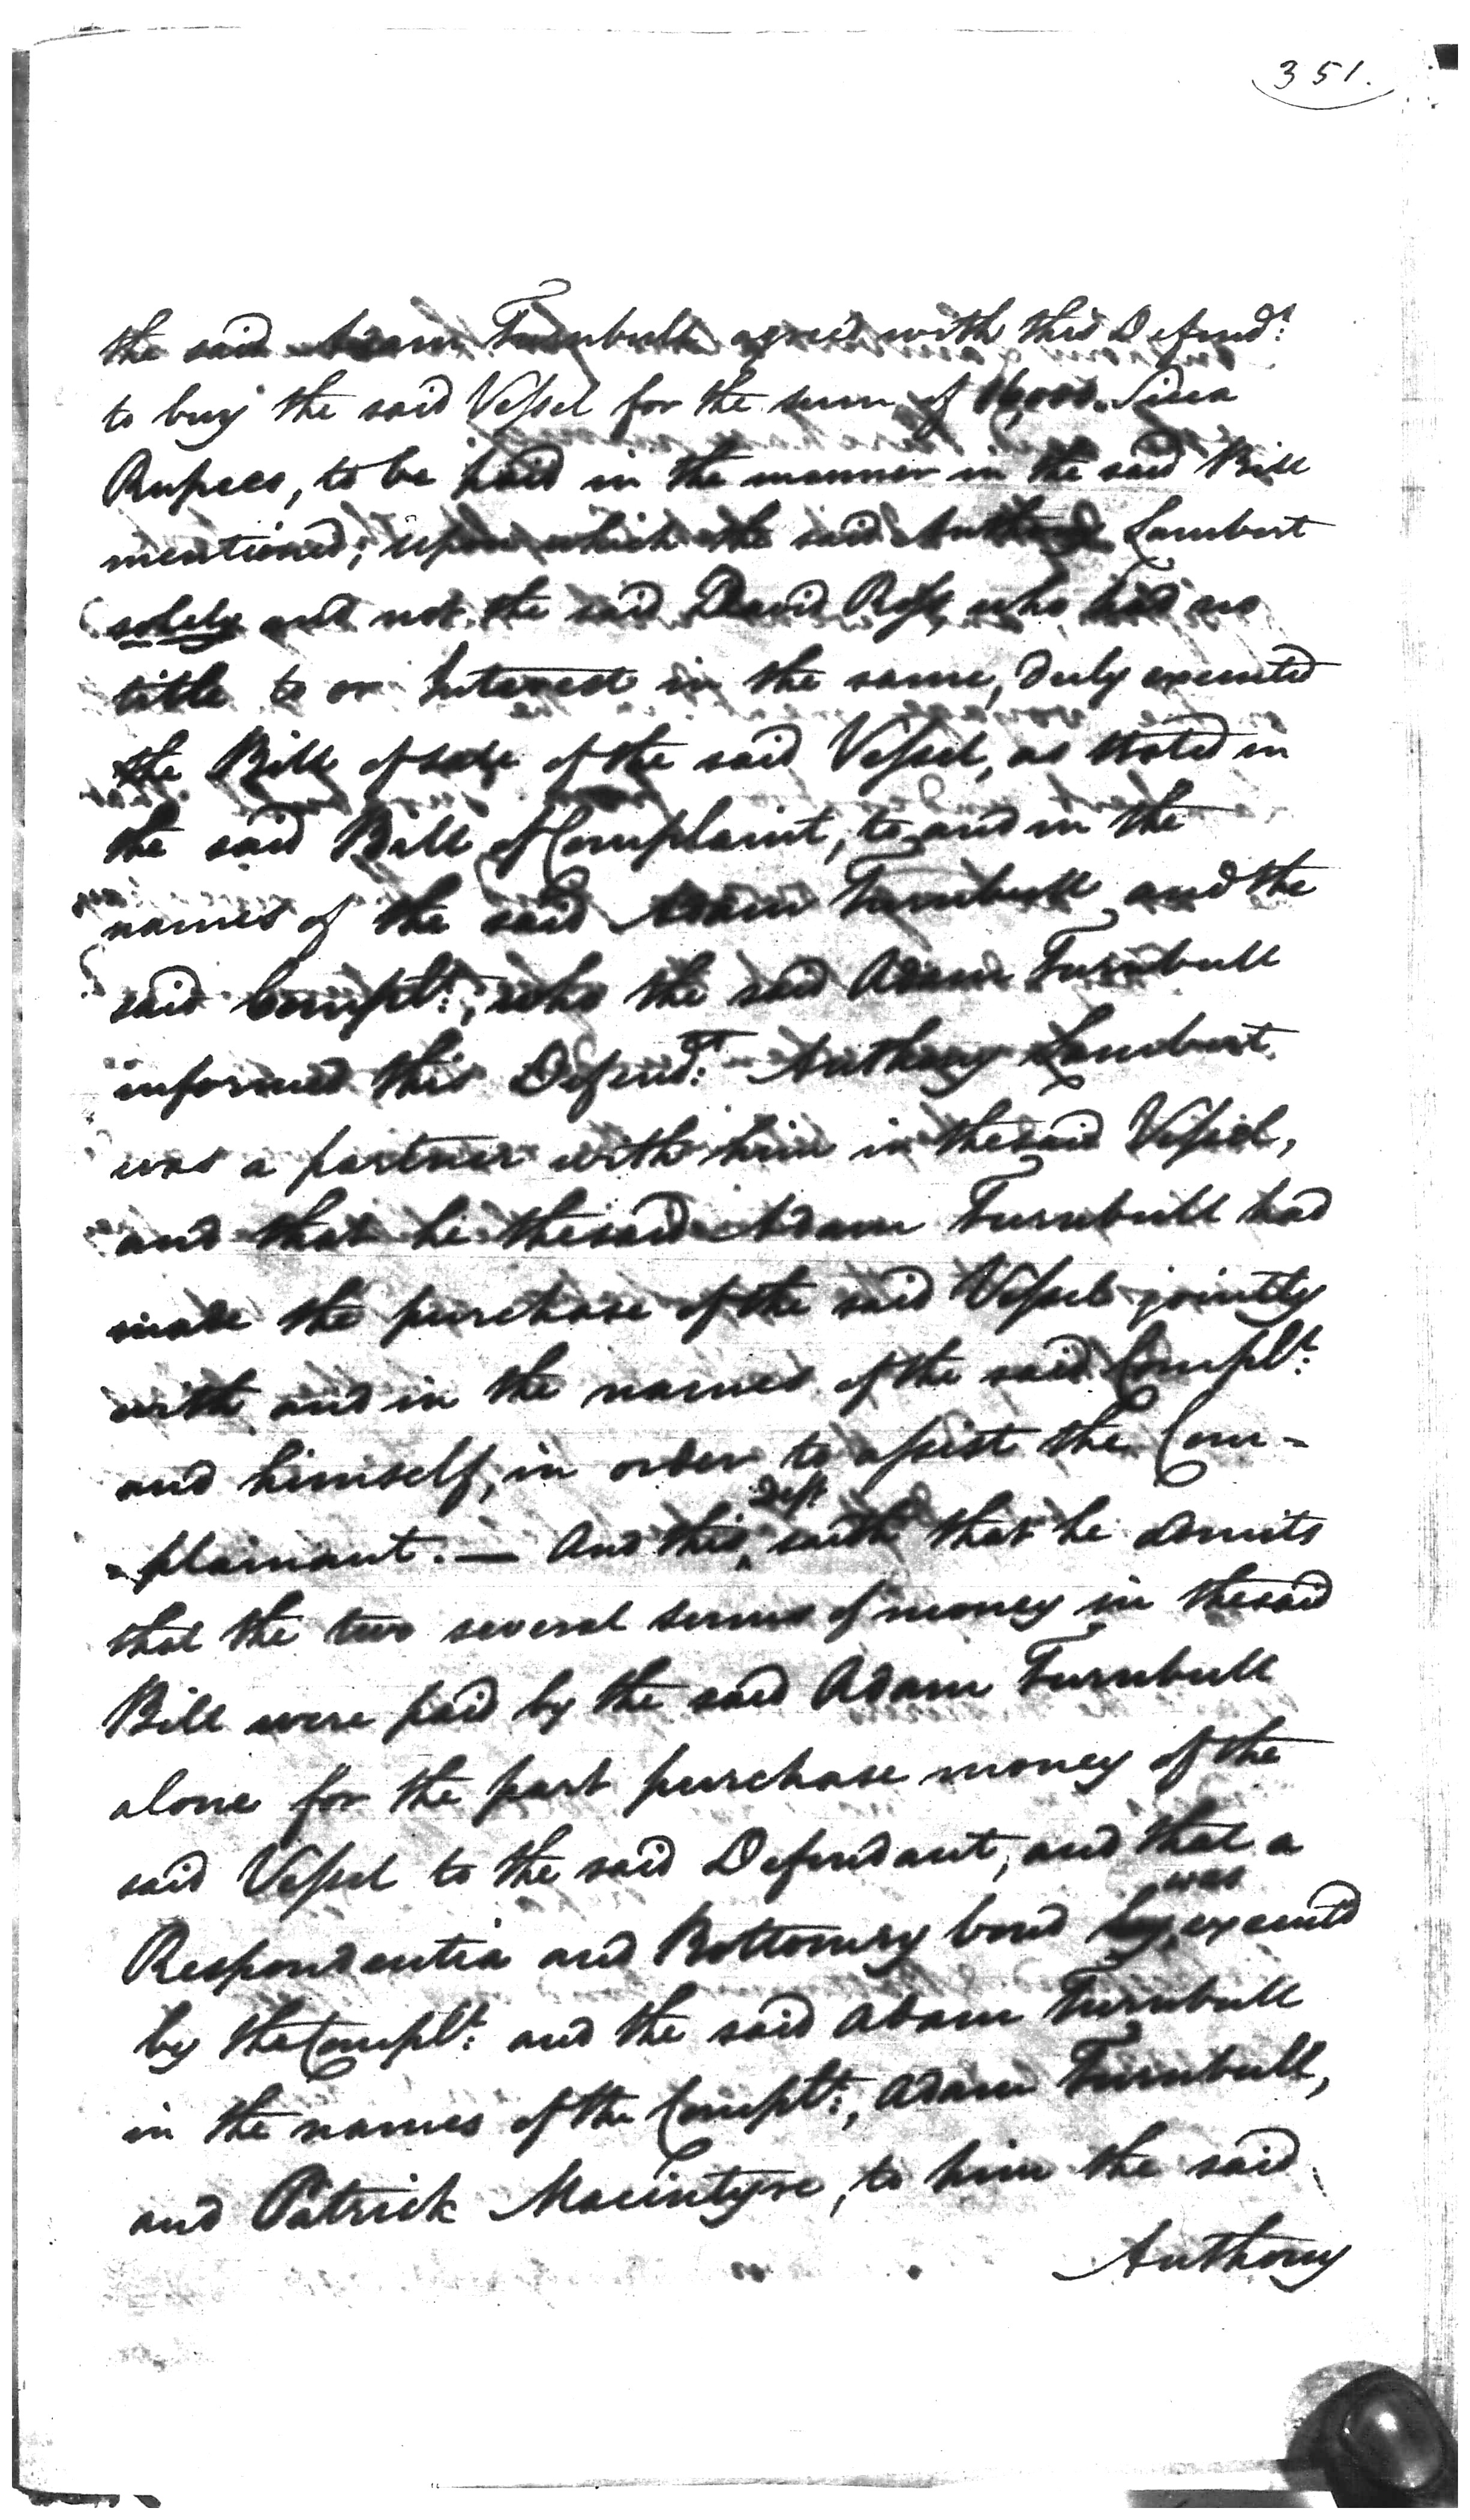 351.
the said Adam Turnbull agreed with this Defend.t
to buy the said Vessel for the sum of 16,000 Sicca
Rupees, to be paid in the manner in the said Bill
mentioned; upon which the said Anthony Lambert
solely and not the said David Ross, who had no
title to or Interest in the same, duly executed
the Bill of sale of the said Vessel, as stated in
the said Bill of Complaint, to and in the
names of the said Adam Turnbull and the
said Complt:, who the said Adam Turnbull
informed this Defend.t Anthony Lambert
was a partner with him in the said Vessel,
and that he the said Adam Turnbull had
made the purchase of the said Vessel jointly
with and in the names of the said Complt:
and himself, in order to assist the Com-
-plainant. — And this Deft saith that he admits
that the two several sums of money in the said
Bill were paid by the said Adam Turnbull
alone for the part purchase money of the
said Vessel to the said Defendant, and that a
Respondentia and Bottomry bond was executed
by the Complt: and the said Adam Turnbull
in the names of the Complt:, Adam Turnbull,
and Patrick Macintyre, to him the said
Anthony